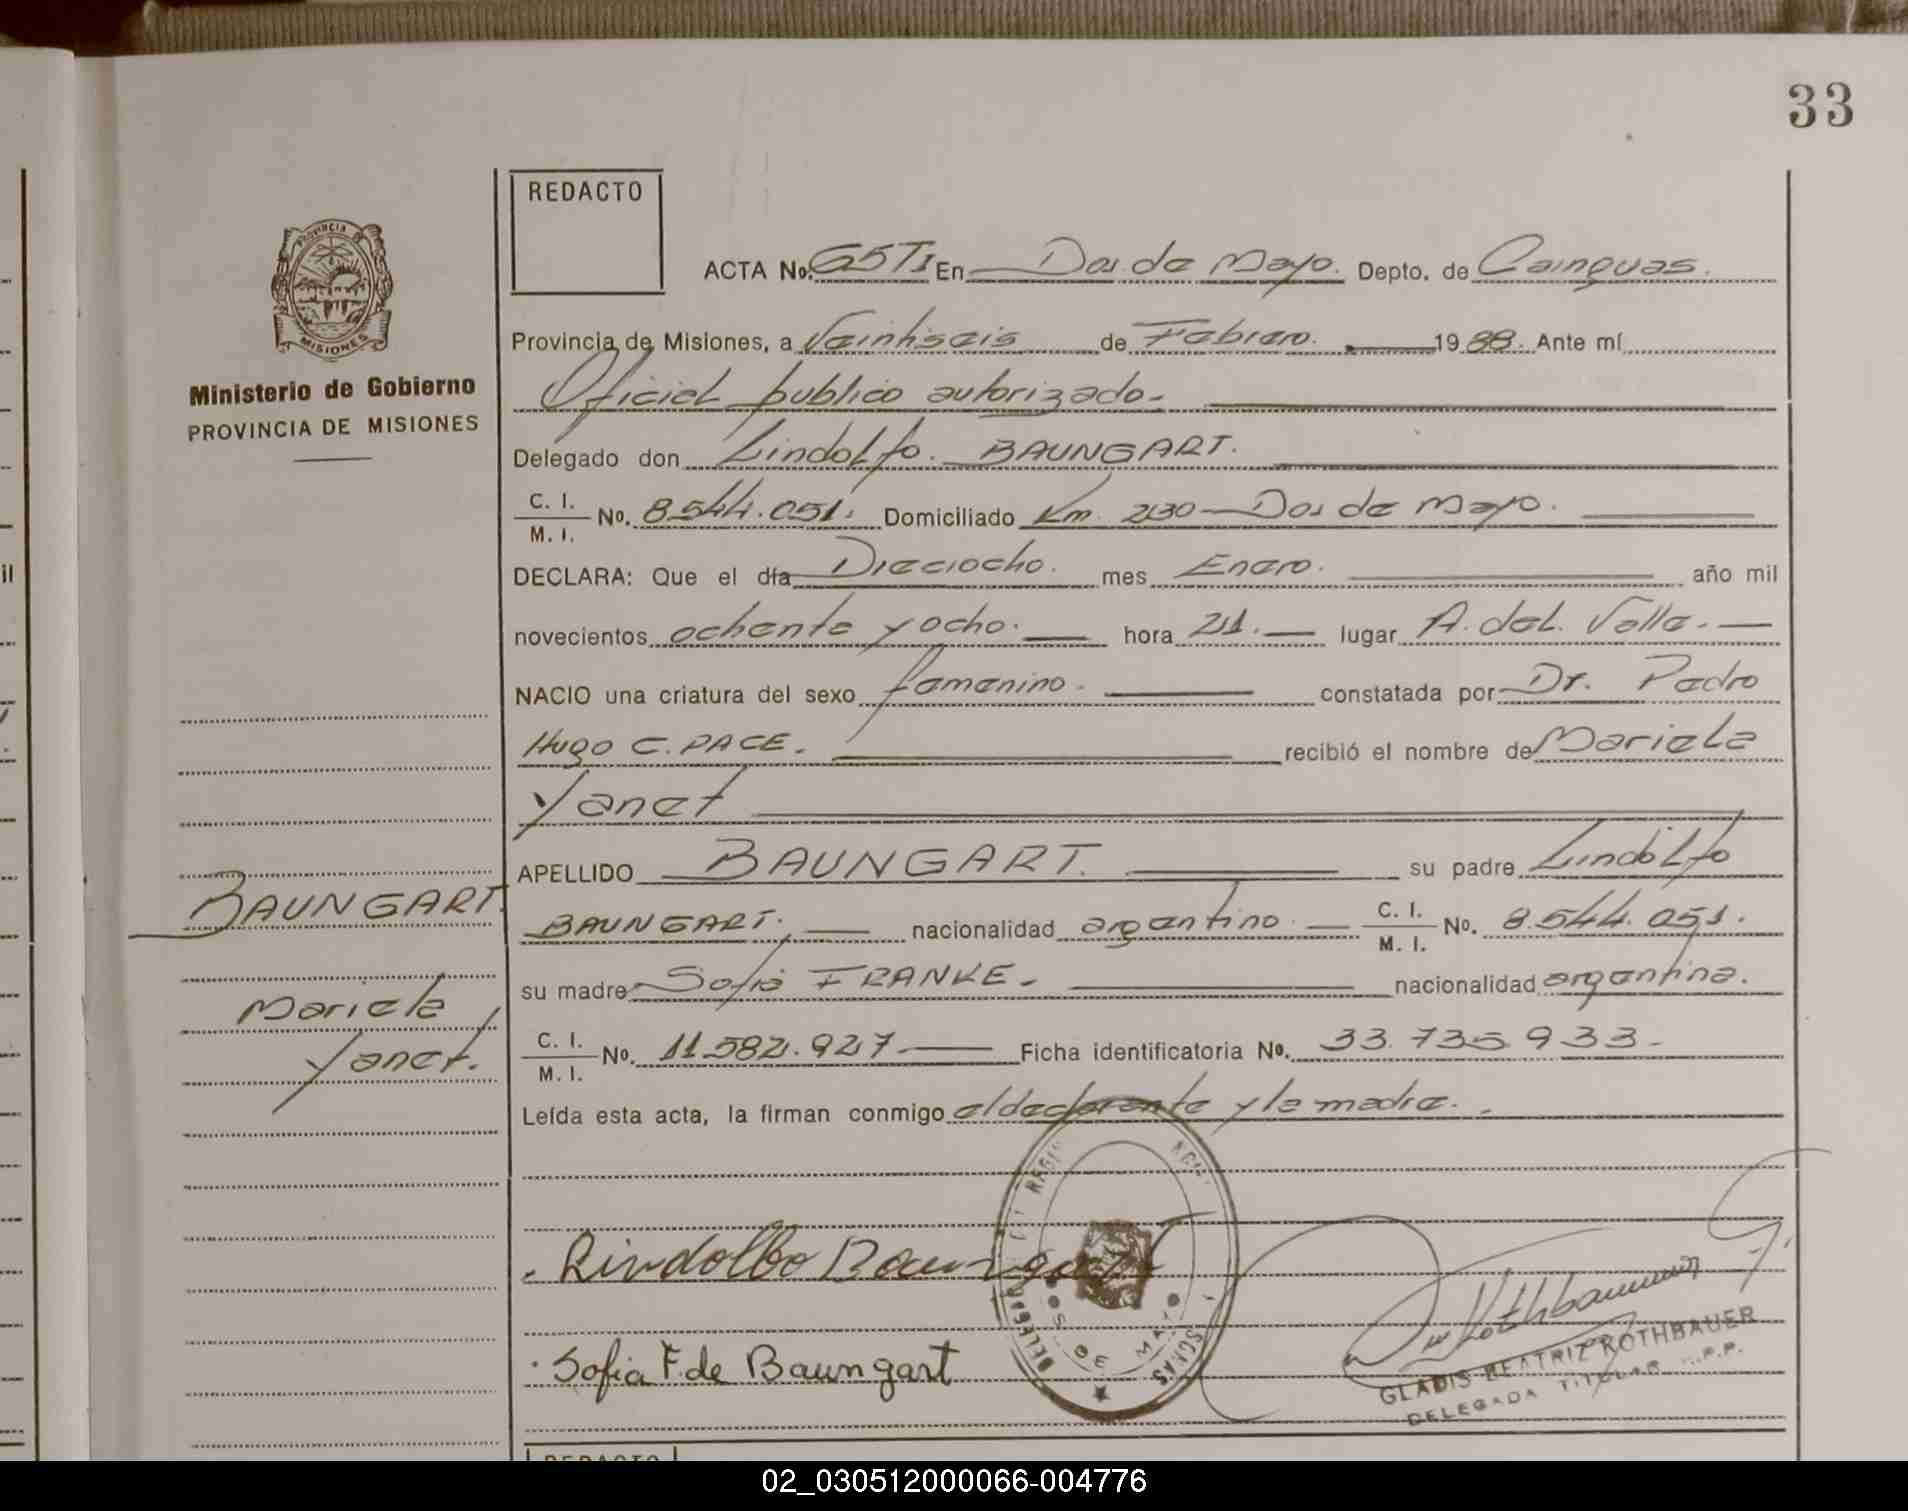 33
REDACTO
PROVINCIA
MISIONES
Ministerio de Gobierno
PROVINCIA DE MISIONES
ACTA No. 65 TI En Dos de Mayo. Depto. de Cainguas.
Provincia de Misiones, a Veintiseis de Febrero. 1988. Ante mí
Oficial publico autorizado.
Delegado don Lindolfo. BAUNGART.
C. I.
M. I.
No. 8.544.051. Domiciliado Km. 230 - Dos de Mayo.
DECLARA: Que el día Dieciocho. mes Enero. año mil
novecientos ochenta y ocho. hora 21. lugar A. del. Valle.
NACIO una criatura del sexo femenino. constatada por Dr. Pedro
Hugo C. PACE. recibió el nombre de Mariela
Yanet
APELLIDO BAUNGART. su padre Lindolfo
BAUNGART. nacionalidad argentino. C. I.
M. I.
No. 8.544.051.
su madre Sofia FRANKE. nacionalidad argentina.
C. I.
M. I.
No. 11.582.927. Ficha identificatoria No. 33.735.933.
Leída esta acta, la firman conmigo el declarante y la madre.
BAUNGART.
Mariela
Yanet.
Lindolfo Baungart
Sofia F. de Baungart
DOS DE MAYO
GLADIS BEATRIZ ROTHBAUER
DELEGADA TITULAR R.P.P.
REDACTO
il
02_030512000066-004776